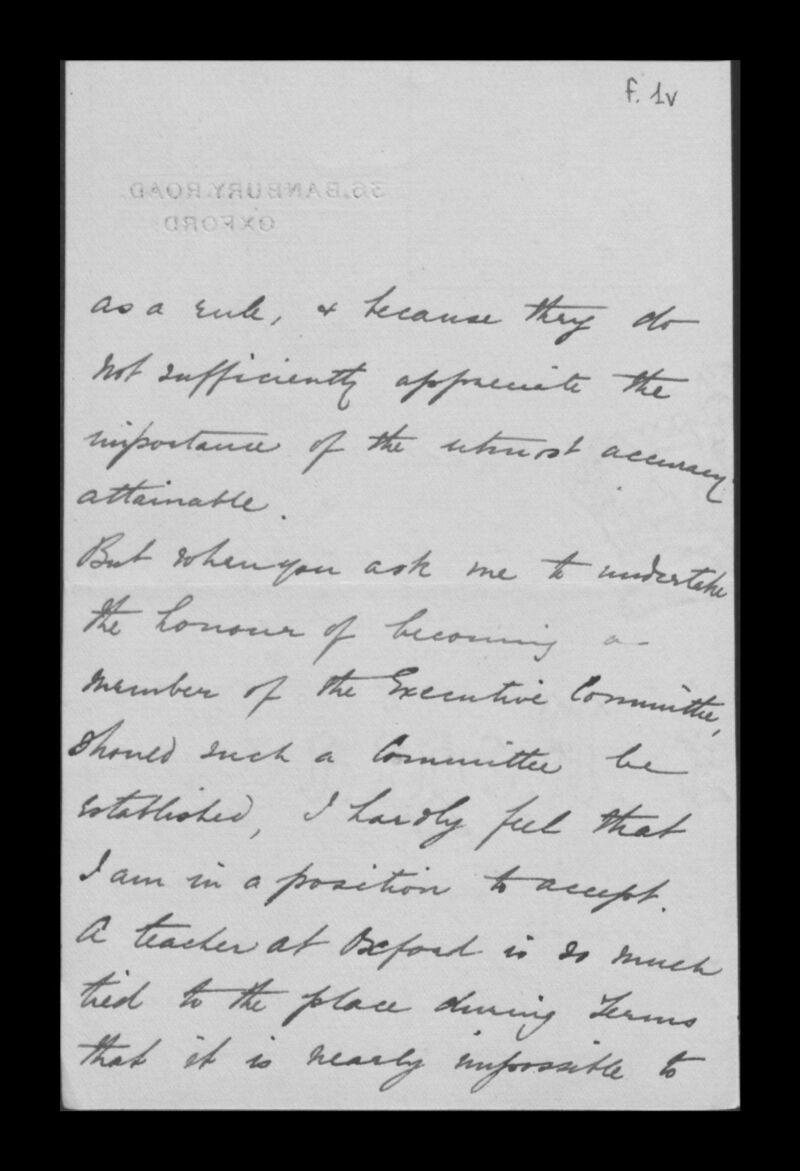 f. 1v
36, BANBURY ROAD.
OXFORD
as a rule, & because they do
not sufficiently appreciate the
importance of the utmost accuracy
attainable.
But when you ask me to undertake
the honour of becoming a
member of the Executive Committee,
should such a Committee be
established, I hardly feel that
I am in a position to accept.
A teacher at Oxford is so much
tied to the place during Terms
that it is nearly impossible to